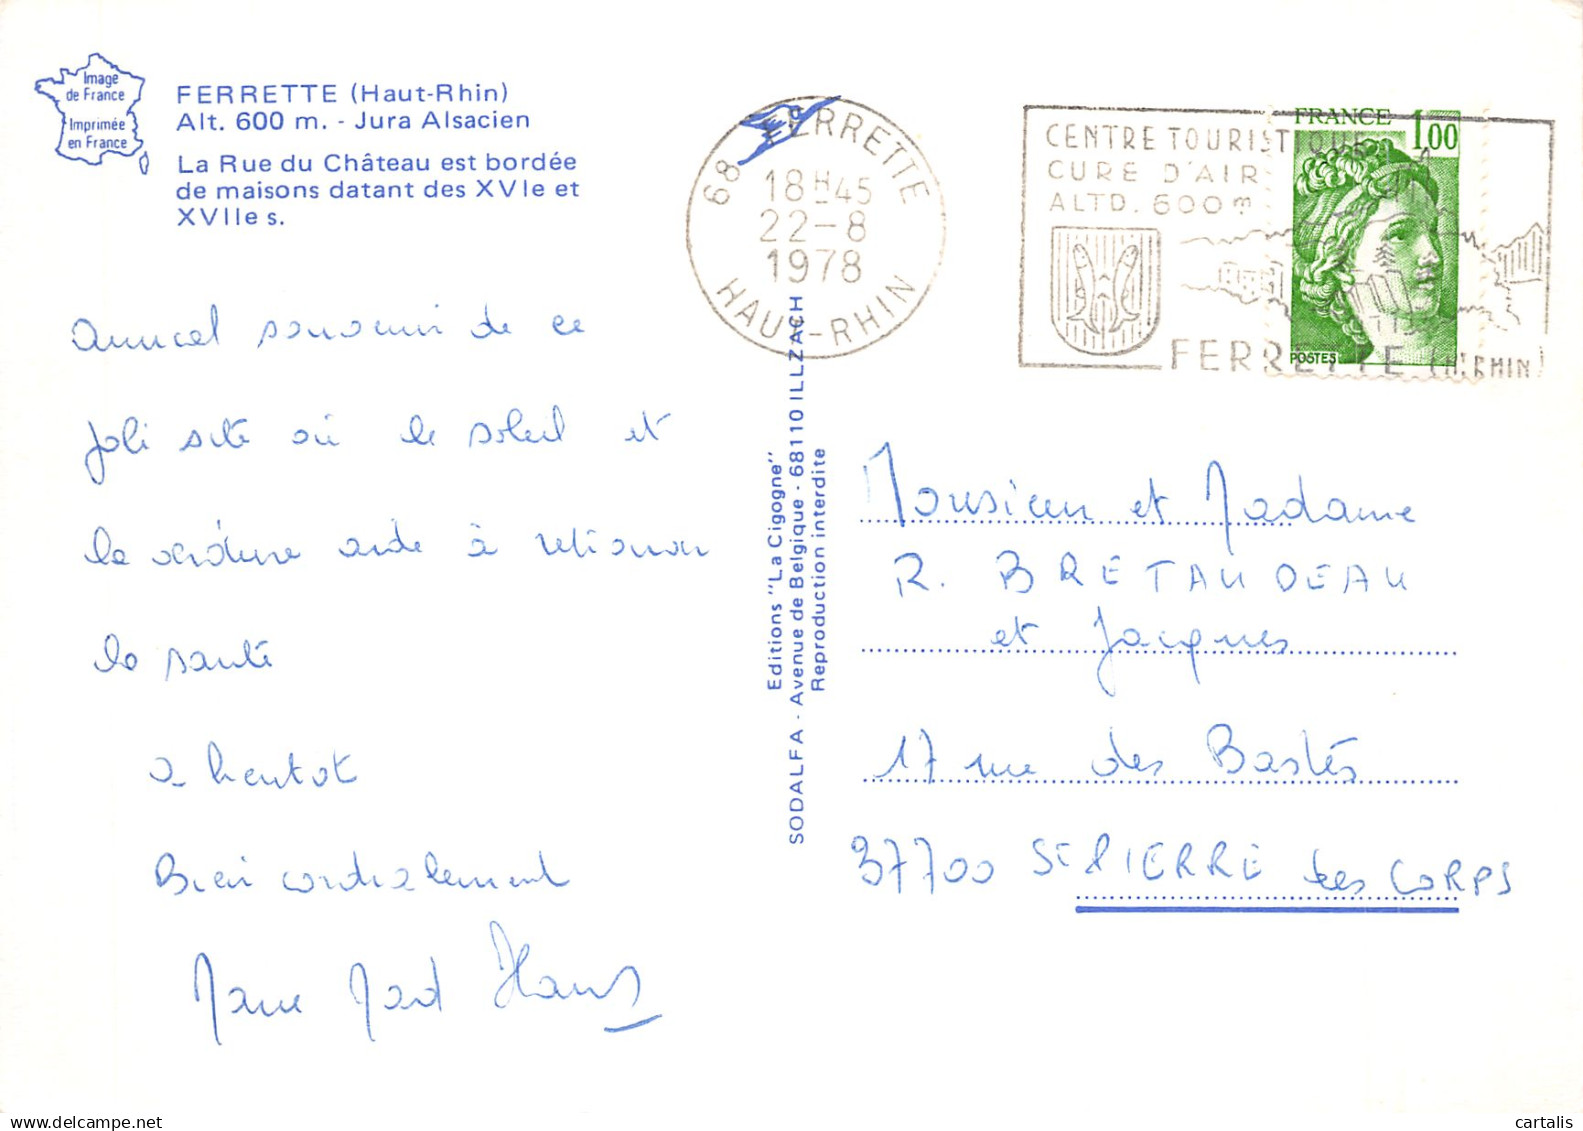 Image
de France
Imprimée
en France
FERRETTE (Haut-Rhin)
Alt. 600 m. - Jura Alsacien
La Rue du Château est bordée
de maisons datant des XVIe et
XVIIe s.
Amical souvenir de ce
joli site où le soleil et
la verdure aide à retrouver
la santé
a bientot
Bien cordialement
68 FERRETTE
18H45
22-8
1978
HAUT-RHIN
CENTRE TOURISTIQUE
CURE D'AIR
ALTD. 600m
FERRETTE (H.RHIN)
FRANCE
1,00
POSTES
Editions "La Cigogne"
SODALFA - Avenue de Belgique - 68110 ILLZACH
Reproduction interdite
Monsieur et Madame
R. BRETAUDEAU
et Jacques
17 rue des Bastés
37700 St PIERRE des CORPS
cartalis